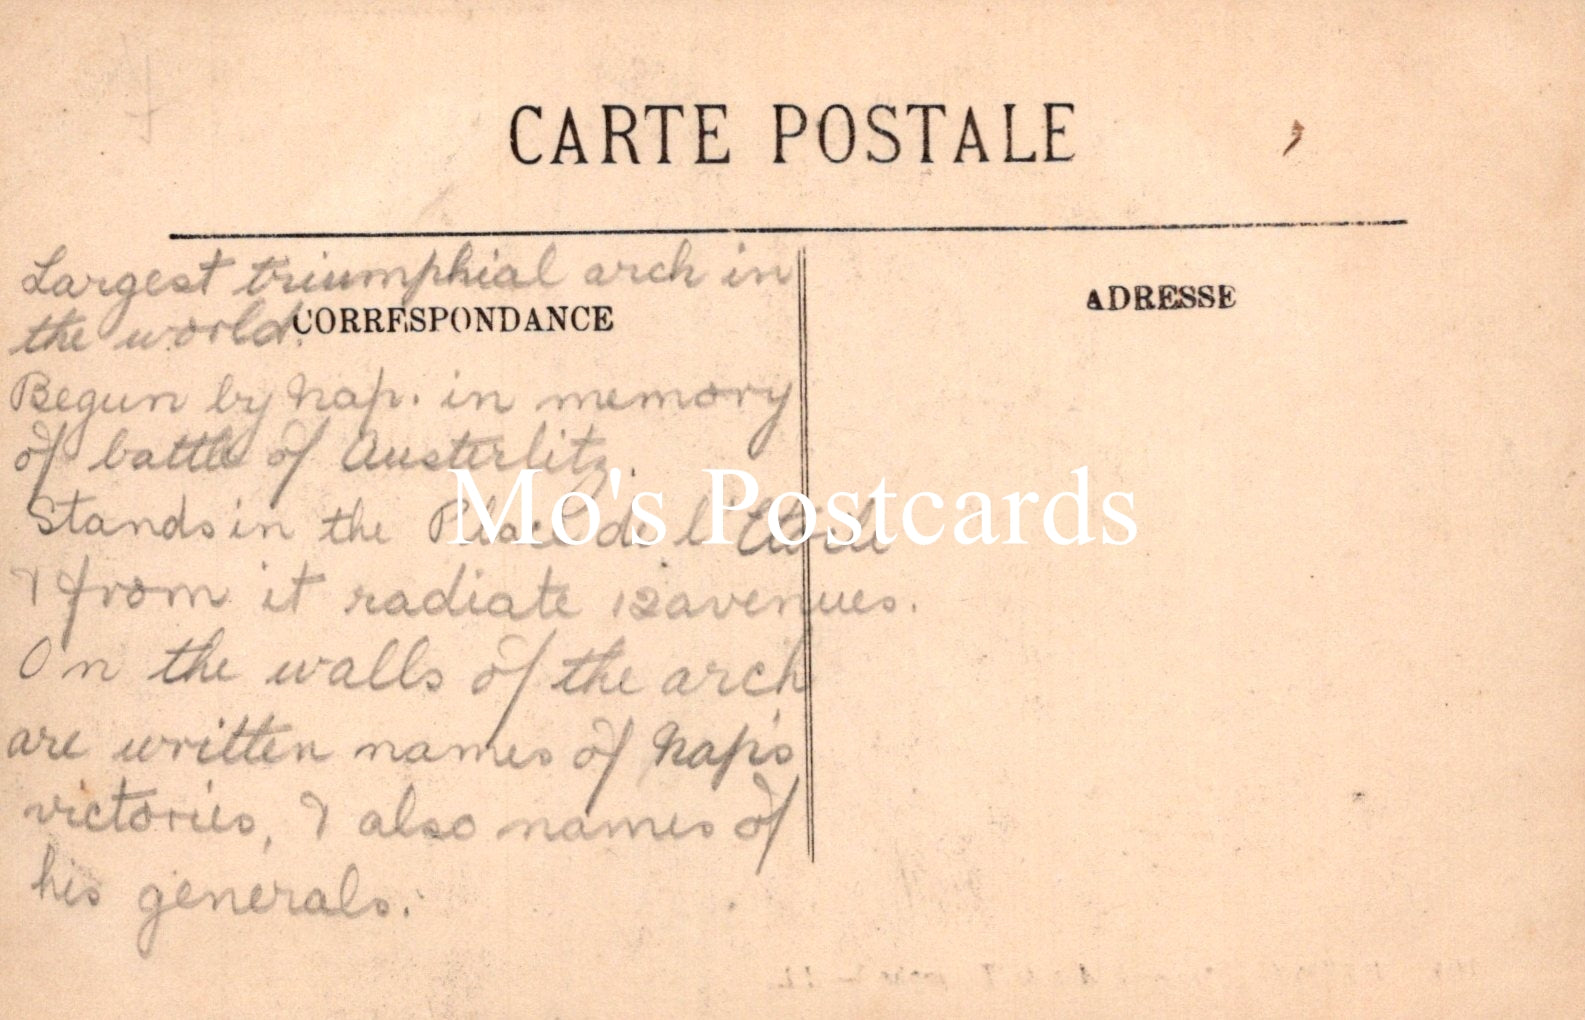 CARTE POSTALE
Largest triumphial arch in
the world.
CORRESPONDANCE
ADRESSE
Begun by Nap. in memory
of battle of Austerlitz.
Stands in the Place de l'Etoile
& from it radiate 12 avenues.
On the walls of the arch
are written names of Nap's
victories, & also names of
his generals.
Mo's Postcards